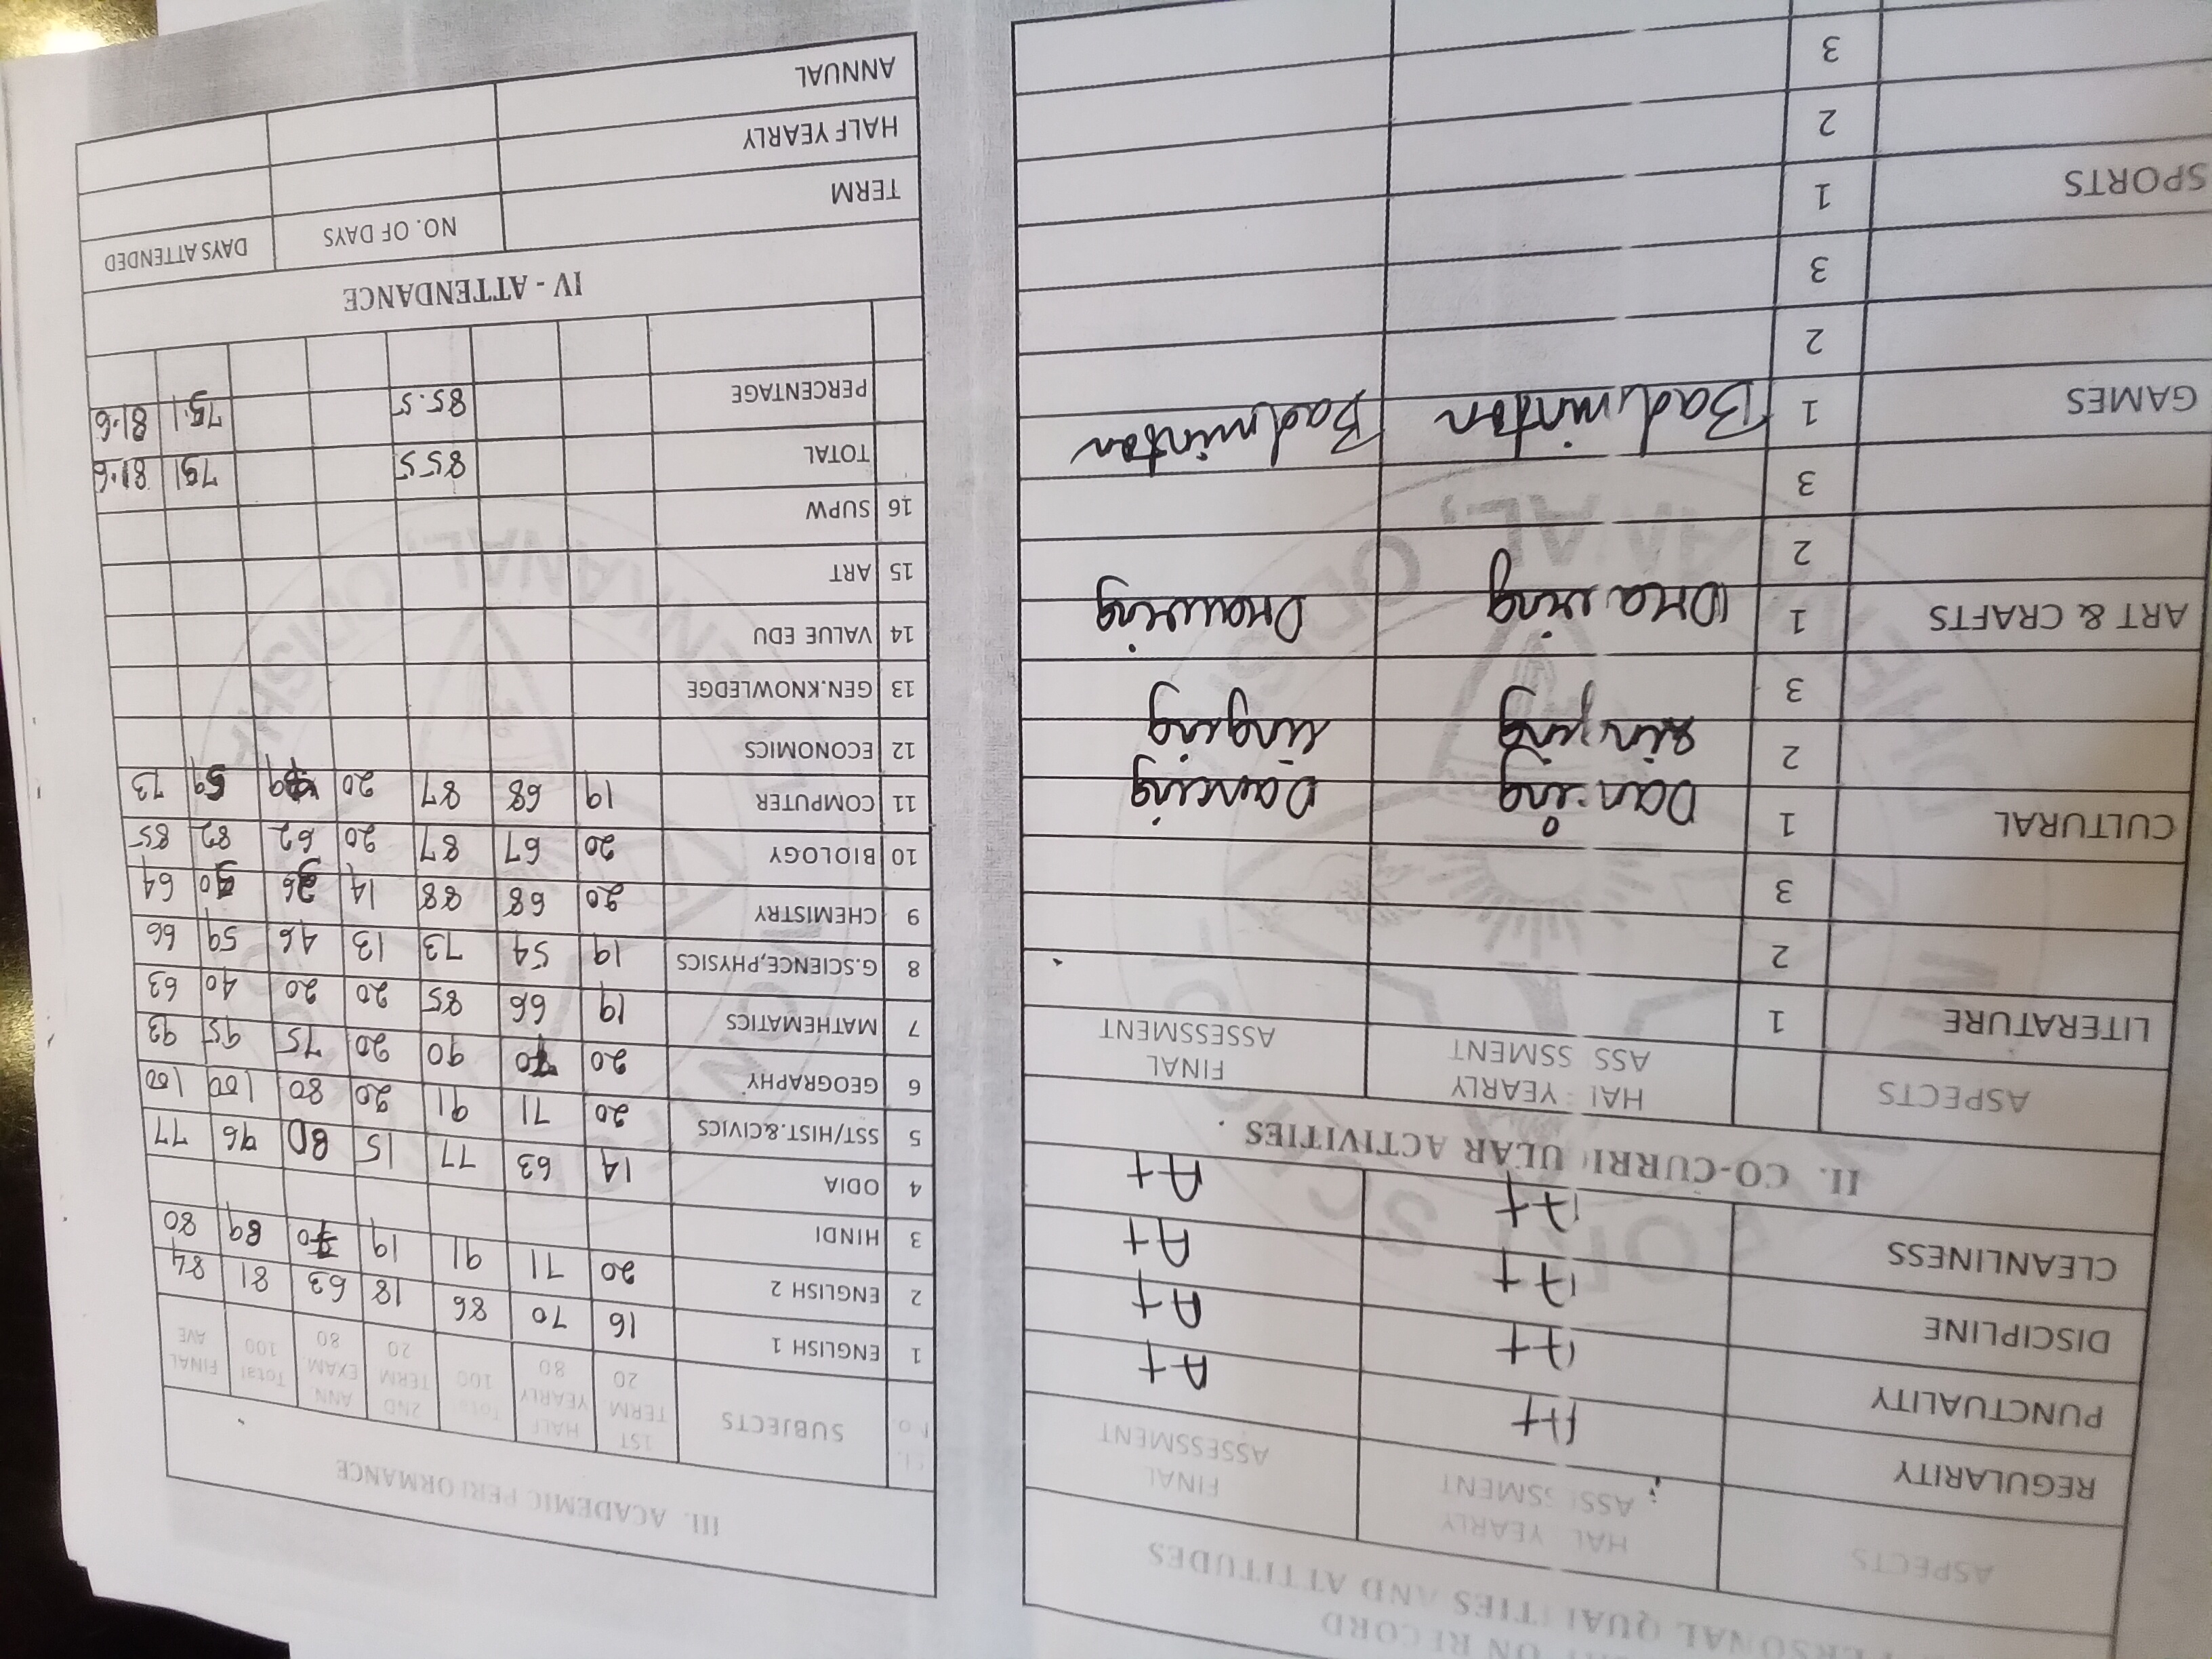 ON RECORD
PERSONAL QUALITIES AND ATTITUDES
ASPECTS HAL YEARLY ASSESSMENT FINAL ASSESSMENT
REGULARITY A+ A+
PUNCTUALITY A+ A+
DISCIPLINE A+ A+
CLEANLINESS A+ A+
II. CO-CURRICULAR ACTIVITIES
ASPECTS HALF YEARLY ASSESSMENT FINAL ASSESSMENT
LITERATURE 1
2
3
CULTURAL 1 Dancing Dancing
2 singing singing
3
ART & CRAFTS 1 Drawing Drawing
2
3
GAMES 1 Badminton Badminton
2
3
SPORTS 1
2
3
III. ACADEMIC PERFORMANCE
SUBJECTS 1ST TERM 20 HALF YEARLY 80 Total 100 2ND TERM 20 ANN EXAM 80 Total 100 FINAL AVE
1 ENGLISH 1 16 70 86 18 63 81 84
2 ENGLISH 2 20 71 91 19 70 89 80
3 HINDI
4 ODIA 14 63 77 15 80 96 77
5 SST/HIST.&CIVICS 20 71 91 20 80 100 100
6 GEOGRAPHY 20 70 90 20 75 95 93
7 MATHEMATICS 19 66 85 20 20 40 63
8 G.SCIENCE,PHYSICS 19 54 73 13 46 59 66
9 CHEMISTRY 20 68 88 14 64
10 BIOLOGY 20 67 87 20 62 82 85
11 COMPUTER 19 68 87 20 59 73
12 ECONOMICS
13 GEN.KNOWLEDGE
14 VALUE EDU
15 ART
16 SUPW
TOTAL 855 751 81.6
PERCENTAGE 85.5 75.1 81.6
IV - ATTENDANCE
TERM NO. OF DAYS DAYS ATTENDED
HALF YEARLY
ANNUAL